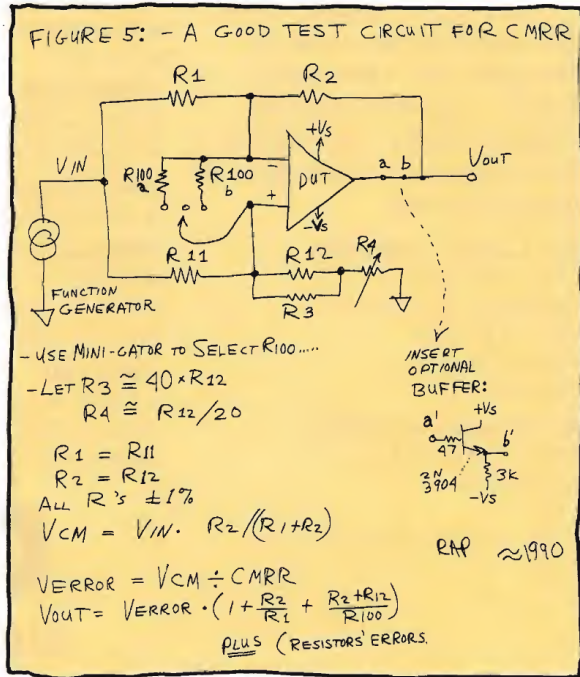 FIGURE 5: - A GOOD TEST CIRCUIT FOR CMRR
R1
R2
VIN
R100
a
R100
b
-
+
DUT
+Vs
-Vs
a
b
VOUT
R11
R12
R4
R3
FUNCTION
GENERATOR
- USE MINI-GATOR TO SELECT R100.....
- LET R3 ≅ 40 × R12
R4 ≅ R12/20
R1 = R11
R2 = R12
ALL R's ±1%
VCM = VIN · R2/(R1+R2)
VERROR = VCM ÷ CMRR
VOUT = VERROR · (1 + R2/R1 + R2+R12/R100)
PLUS (RESISTORS' ERRORS.
INSERT
OPTIONAL
BUFFER:
a'
+Vs
47
b'
2N
3904
3K
-Vs
RAP ≈1990